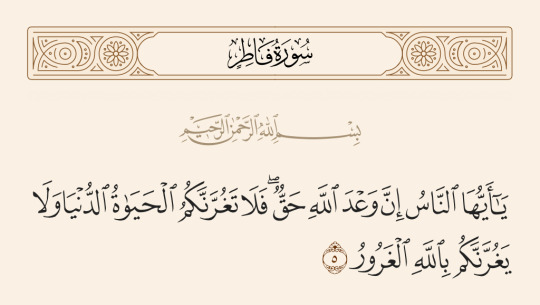 سُورَةُ فَاطِرٍ
بِسْمِ ٱللَّهِ ٱلرَّحْمَٰنِ ٱلرَّحِيمِ
يَٰٓأَيُّهَا ٱلنَّاسُ إِنَّ وَعْدَ ٱللَّهِ حَقٌّۖ فَلَا تَغُرَّنَّكُمُ ٱلْحَيَوٰةُ ٱلدُّنْيَا وَلَا
يَغُرَّنَّكُم بِٱللَّهِ ٱلْغَرُورُ ٥